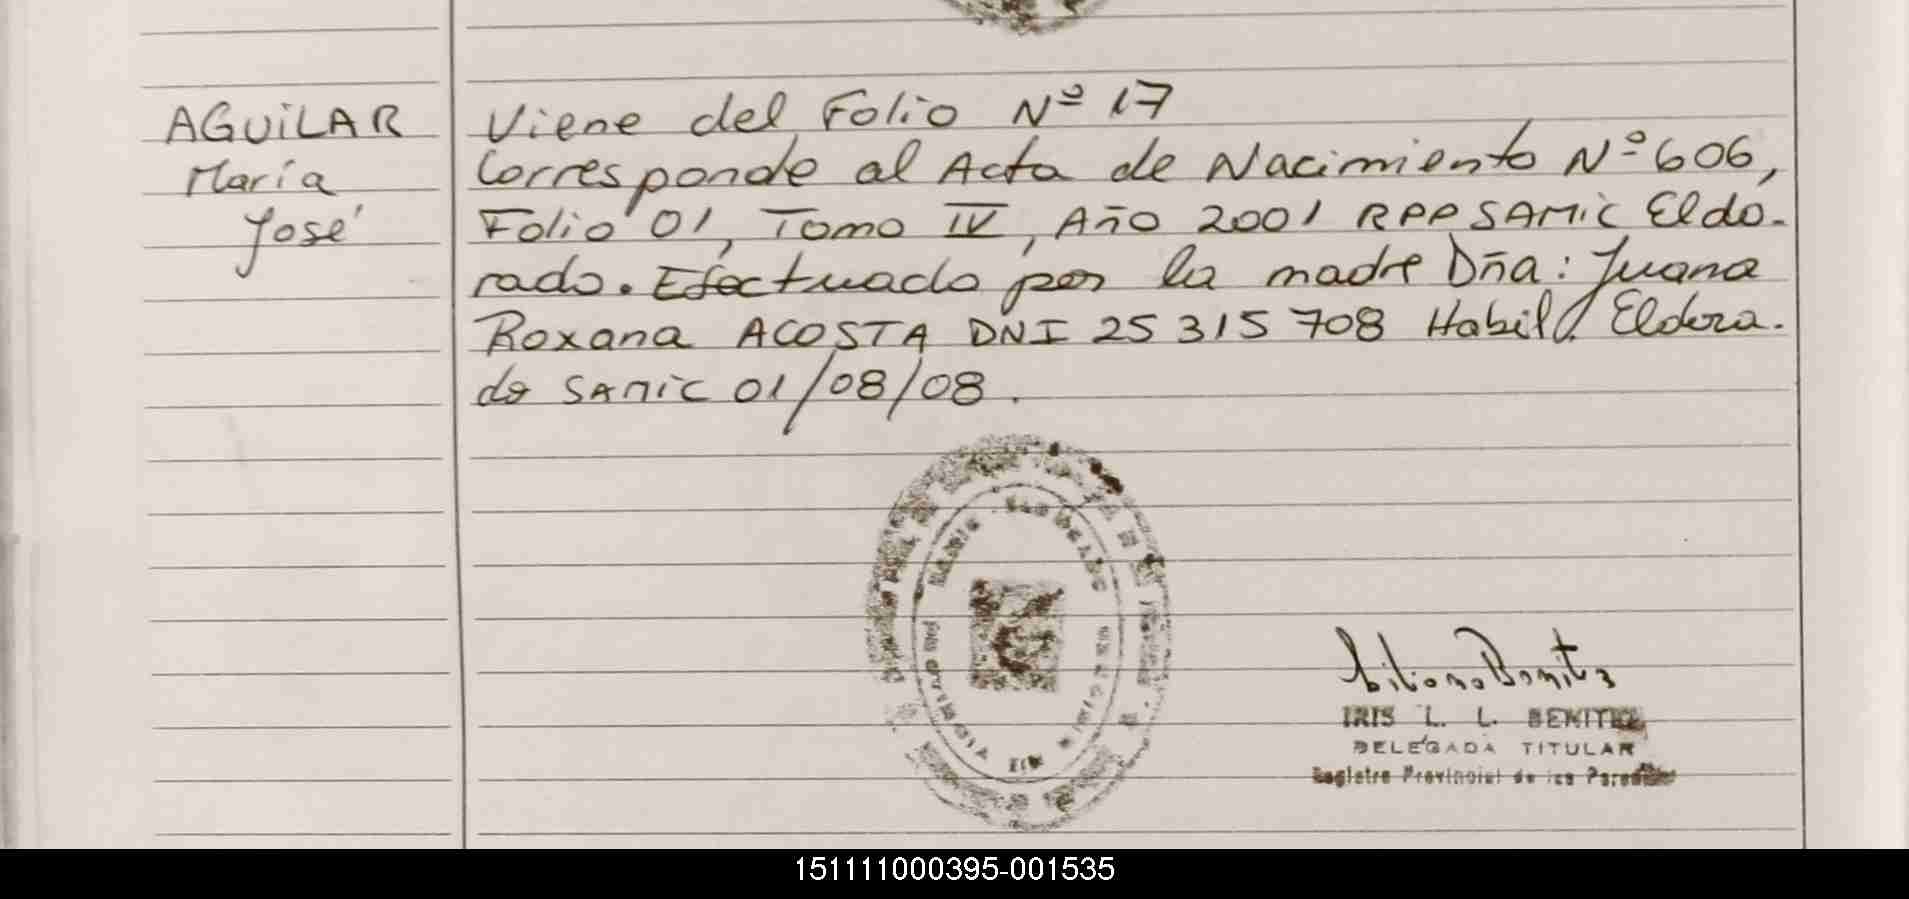 AGUiLAR
María
José
Viene del Folio Nº 17
Corresponde al Acta de Nacimiento Nº 606,
Folio 01, Tomo IV, Año 2001 RPPSAMIC Eldo-
rado. Efectuado por la madre Dña: Juana
Roxana ACOSTA DNI 25 315 708 Habil. Eldora-
do SAMIC 01/08/08.
IRIS L. L. BENITEZ
DELEGADA TITULAR
Registro Provincial de las Personas
151111000395-001535